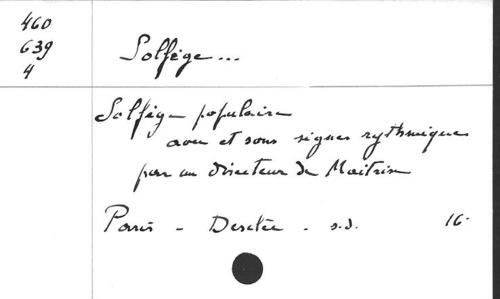 460
639
4
Solfège...
Solfège populaire
avec et sans signes rythmiques
par un Directeur de Maitrise
Paris - Desclée - s.d. 16.